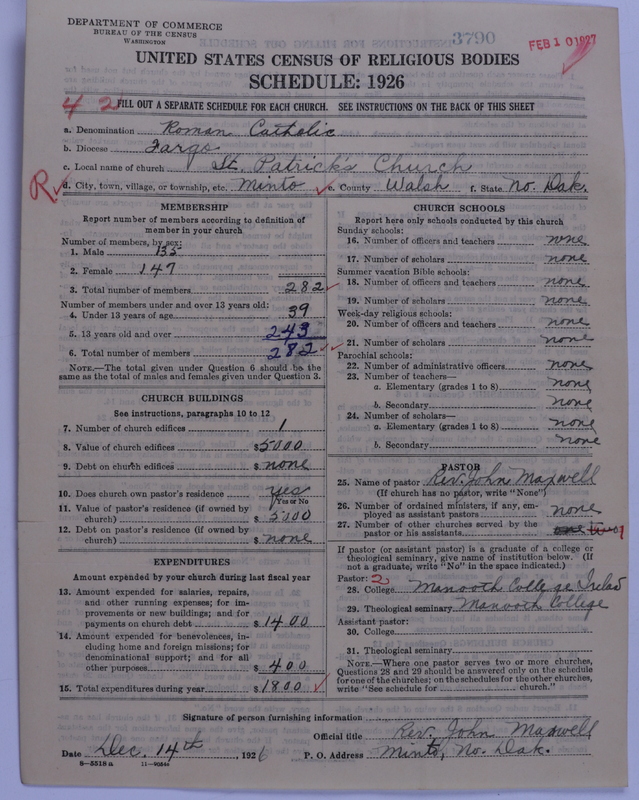 DEPARTMENT OF COMMERCE
BUREAU OF THE CENSUS
WASHINGTON
3790
FEB 10 1927
UNITED STATES CENSUS OF RELIGIOUS BODIES
SCHEDULE: 1926
4 2
FILL OUT A SEPARATE SCHEDULE FOR EACH CHURCH. SEE INSTRUCTIONS ON THE BACK OF THIS SHEET
a. Denomination Roman Catholic
b. Diocese Fargo
c. Local name of church St. Patrick's Church
R d. City, town, village, or township, etc. Minto e. County Walsh f. State No. Dak.
MEMBERSHIP
Report number of members according to definition of
member in your church
Number of members, by sex:
1. Male 135
2. Female 147
3. Total number of members 282
Number of members under and over 13 years old:
4. Under 13 years of age 39
5. 13 years old and over 243
6. Total number of members 282
NOTE.—The total given under Question 6 should be the
same as the total of males and females given under Question 3.
CHURCH BUILDINGS
See instructions, paragraphs 10 to 12
7. Number of church edifices 1
8. Value of church edifices $5000
9. Debt on church edifices $ none
10. Does church own pastor's residence yes
(Yes or No
11. Value of pastor's residence (if owned by
church) $ 5000
12. Debt on pastor's residence (if owned by
church) $ none
EXPENDITURES
Amount expended by your church during last fiscal year
13. Amount expended for salaries, repairs,
and other running expenses; for im-
provements or new buildings; and for
payments on church debt $1400
14. Amount expended for benevolences, in-
cluding home and foreign missions; for
denominational support; and for all
other purposes $ 400
15. Total expenditures during year $1800
CHURCH SCHOOLS
Report here only schools conducted by this church
Sunday schools:
16. Number of officers and teachers none
17. Number of scholars none
Summer vacation Bible schools:
18. Number of officers and teachers none
19. Number of scholars none
Week-day religious schools:
20. Number of officers and teachers none
21. Number of scholars none
Parochial schools:
22. Number of administrative officers none
23. Number of teachers—
a. Elementary (grades 1 to 8) none
b. Secondary none
24. Number of scholars—
a. Elementary (grades 1 to 8) none
b. Secondary none
PASTOR
25. Name of pastor Rev. John Maxwell
(If church has no pastor, write "None")
26. Number of ordained ministers, if any, em-
ployed as assistant pastors none
27. Number of other churches served by the
pastor or his assistants 1
If pastor (or assistant pastor) is a graduate of a college or
theological seminary, give name of institution below. (If
not a graduate, write "No" in the space indicated.)
Pastor: 2
28. College Manooth College Irelad
29. Theological seminary Manooth College
Assistant pastor:
30. College
31. Theological seminary
NOTE.—Where one pastor serves two or more churches,
Questions 28 and 29 should be answered only on the schedule
for one of the churches; on the schedules for the other churches,
write "See schedule for church."
Signature of person furnishing information
Official title Rev. John Maxwell
Date Dec. 14th, 1926 P. O. Address Minto, No. Dak.
8—5518 a 11—9054a